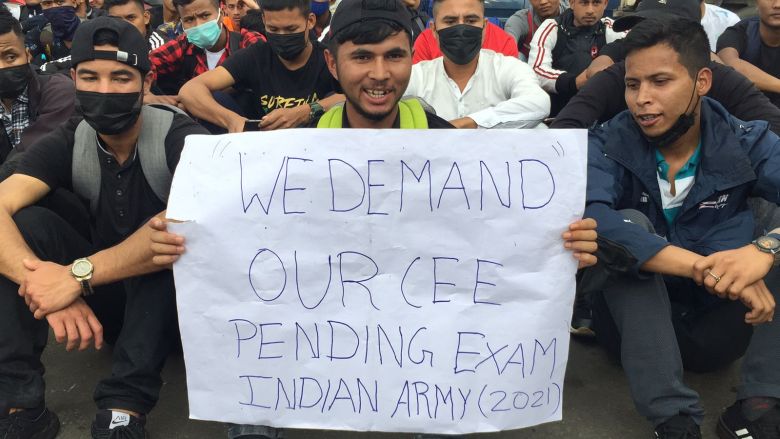 "WE DEMAND"
OUR CEE
PENDING EXAM
INDIAN ARMY (2021)